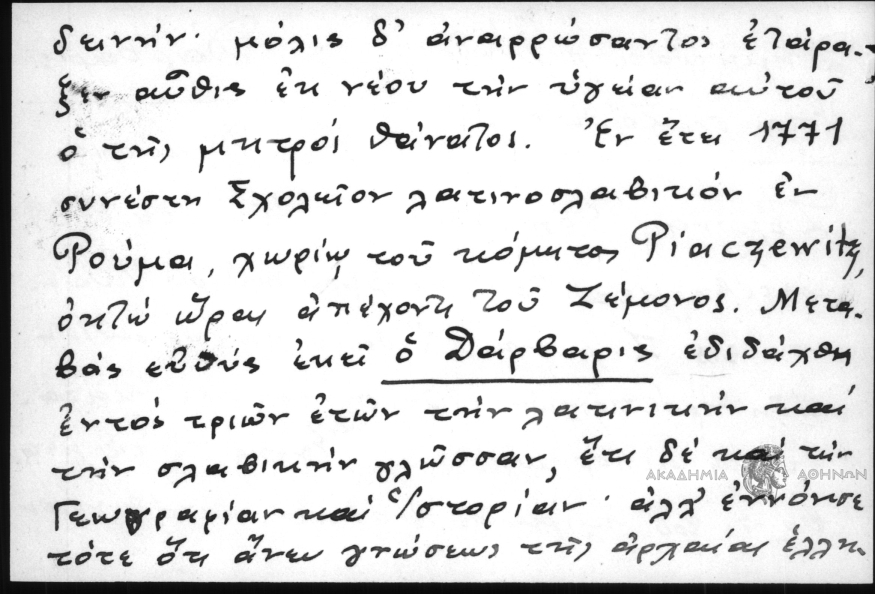 δεινήν· μόλις δ' ἀναρρώσαντος ἐτάρα-
ξεν αὖθις ἐκ νέου τὴν ὑγείαν αὐτοῦ
ὁ τῆς μητρός θάνατος. Ἐν ἔτει 1771
συνέστη Σχολεῖον λατινοσλαβικόν ἐν
Ρούμᾳ, χωρίῳ τοῦ κόμητος Piaczewitz,
ὀκτώ ὥρας ἀπέχοντι τοῦ Ζέμονος. Μετα-
βάς εὐθύς ἐκεῖ ὁ Δάρβαρις ἐδιδάχθη
ἐντός τριῶν ἐτῶν τὴν λατινικὴν καί
τὴν σλαβικὴν γλῶσσαν, ἔτι δέ καί τὴν
Γεωγραφίαν καί Ἱστορίαν· ἀλλ' ἐννόησε
τότε ὅτι ἄνευ γνώσεως τῆς ἀρχαίας ἑλλη-
ΑΚΑΔΗΜΙΑ ΑΘΗΝΩΝ